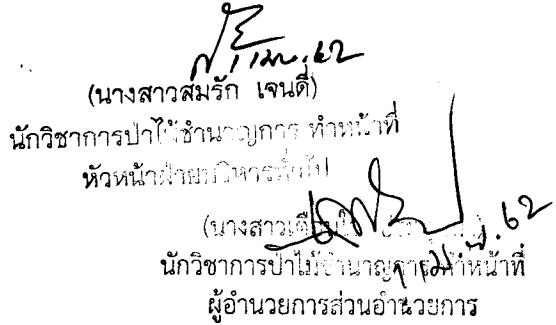 1 เม.ย. 62
(นางสาวสมรัก เจนดี)
นักวิชาการป่าไม้ชำนาญการ ทำหน้าที่
หัวหน้าฝ่ายบริหารทั่วไป
(นางสาวเตือนใจ
1 เม.ย. 62
นักวิชาการป่าไม้ชำนาญการ ทำหน้าที่
ผู้อำนวยการส่วนอำนวยการ